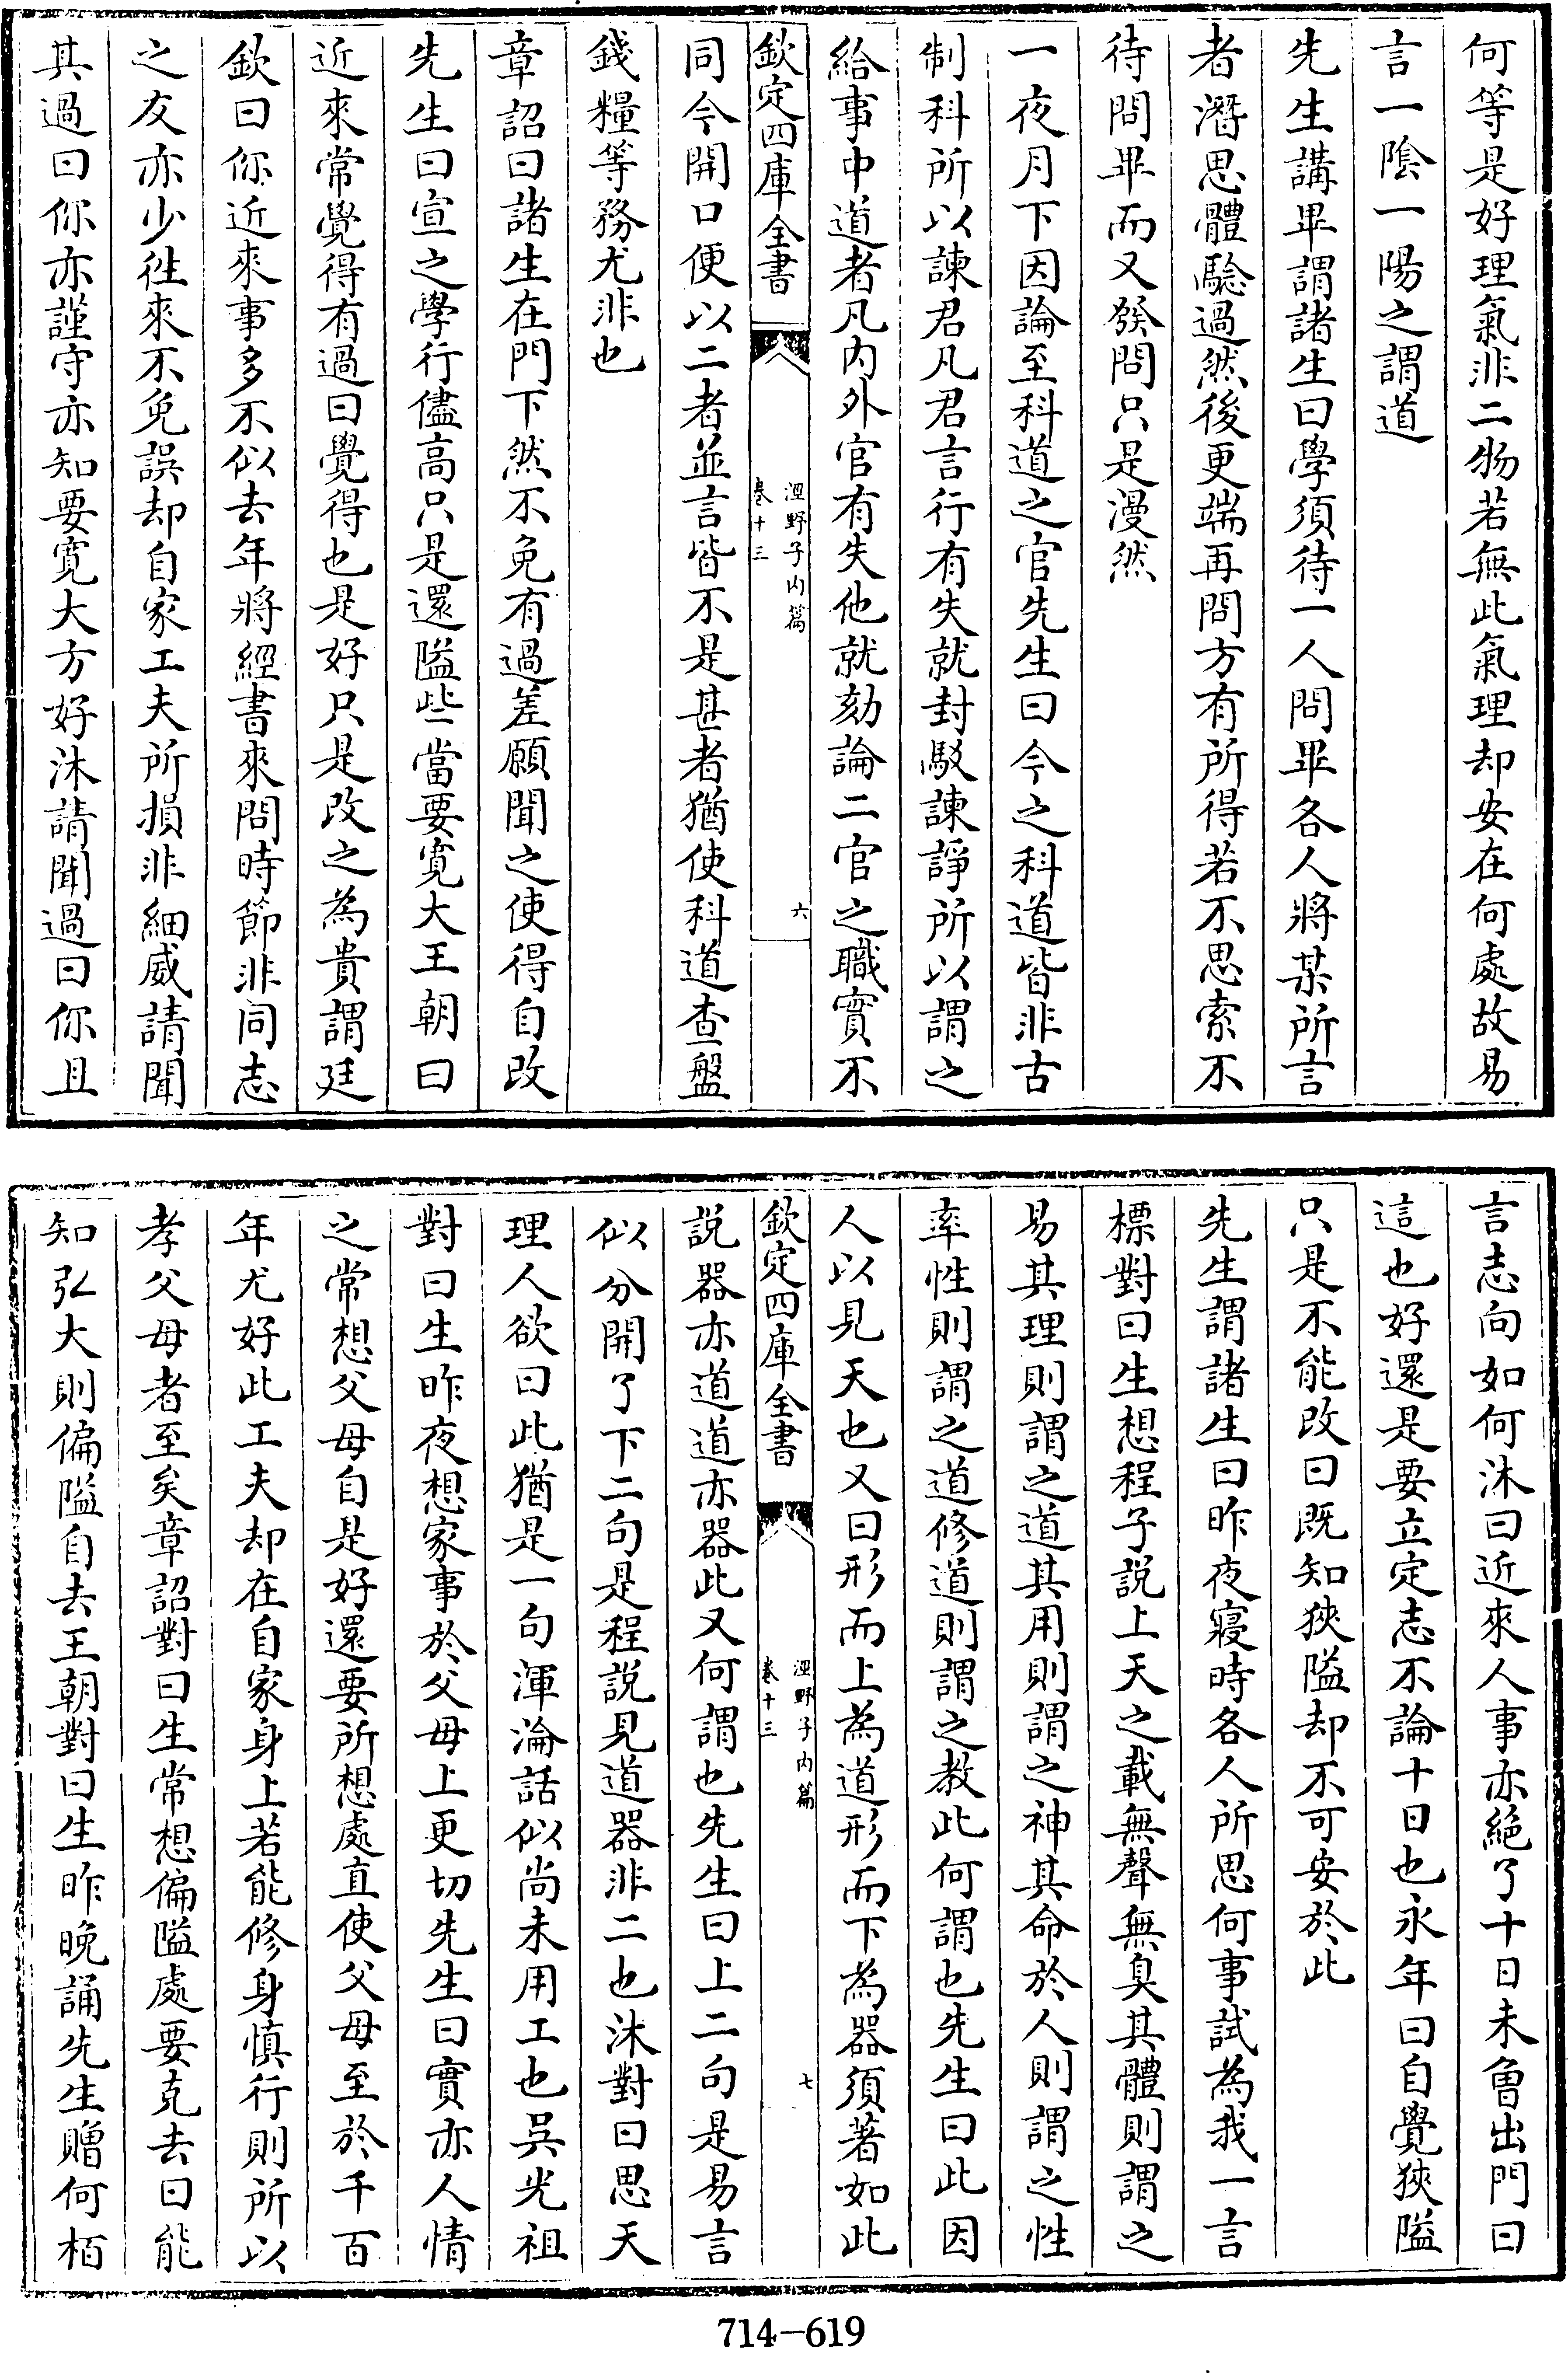 何等是好理氣非二物若無此氣理却安在何處故易
言一陰一陽之謂道
先生講畢謂諸生曰學須待一人問畢各人將某所言
者潛思體驗過然後更端再問方有所得若不思索不
待問畢而又發問只是漫然
一夜月下因論至科道之官先生曰今之科道皆非古
制科所以諫君凡君言行有失就封駁諫諍所以謂之
給事中道者凡内外官有失他就劾論二官之職實不
欽定四庫全書
涇野子内篇
卷十三
六
同今開口便以二者並言皆不是甚者猶使科道查盤
錢糧等務尤非也
章詔曰諸生在門下然不免有過差願聞之使得自改
先生曰宣之學行儘高只是還隘些當要寛大王朝曰
近來常覺得有過曰覺得也是好只是改之為貴謂廷
欽曰你近來事多不似去年將經書來問時節非同志
之友亦少徃來不免誤却自家工夫所損非細威請聞
其過曰你亦謹守亦知要寛大方好沐請聞過曰你且
言志向如何沐曰近來人事亦絶了十日未曾出門曰
這也好還是要立定志不論十日也永年曰自覺狹隘
只是不能改曰既知狹隘却不可安於此
先生謂諸生曰昨夜寢時各人所思何事試為我一言
標對曰生想程子說上天之載無聲無臭其體則謂之
易其理則謂之道其用則謂之神其命於人則謂之性
率性則謂之道修道則謂之教此何謂也先生曰此因
人以見天也又曰形而上為道形而下為器須著如此
欽定四庫全書
涇野子内篇
卷十三
七
說器亦道道亦器此又何謂也先生曰上二句是易言
似分開了下二句是程說見道器非二也沐對曰思天
理人欲曰此猶是一句渾淪話似尚未用工也吳光祖
對曰生昨夜想家事於父母上更切先生曰實亦人情
之常想父母自是好還要所想處直使父母至於千百
年尤好此工夫却在自家身上若能修身慎行則所以
孝父母者至矣章詔對曰生常想偏隘處要克去曰能
知弘大則偏隘自去王朝對曰生昨晚誦先生贈何栢
714-619